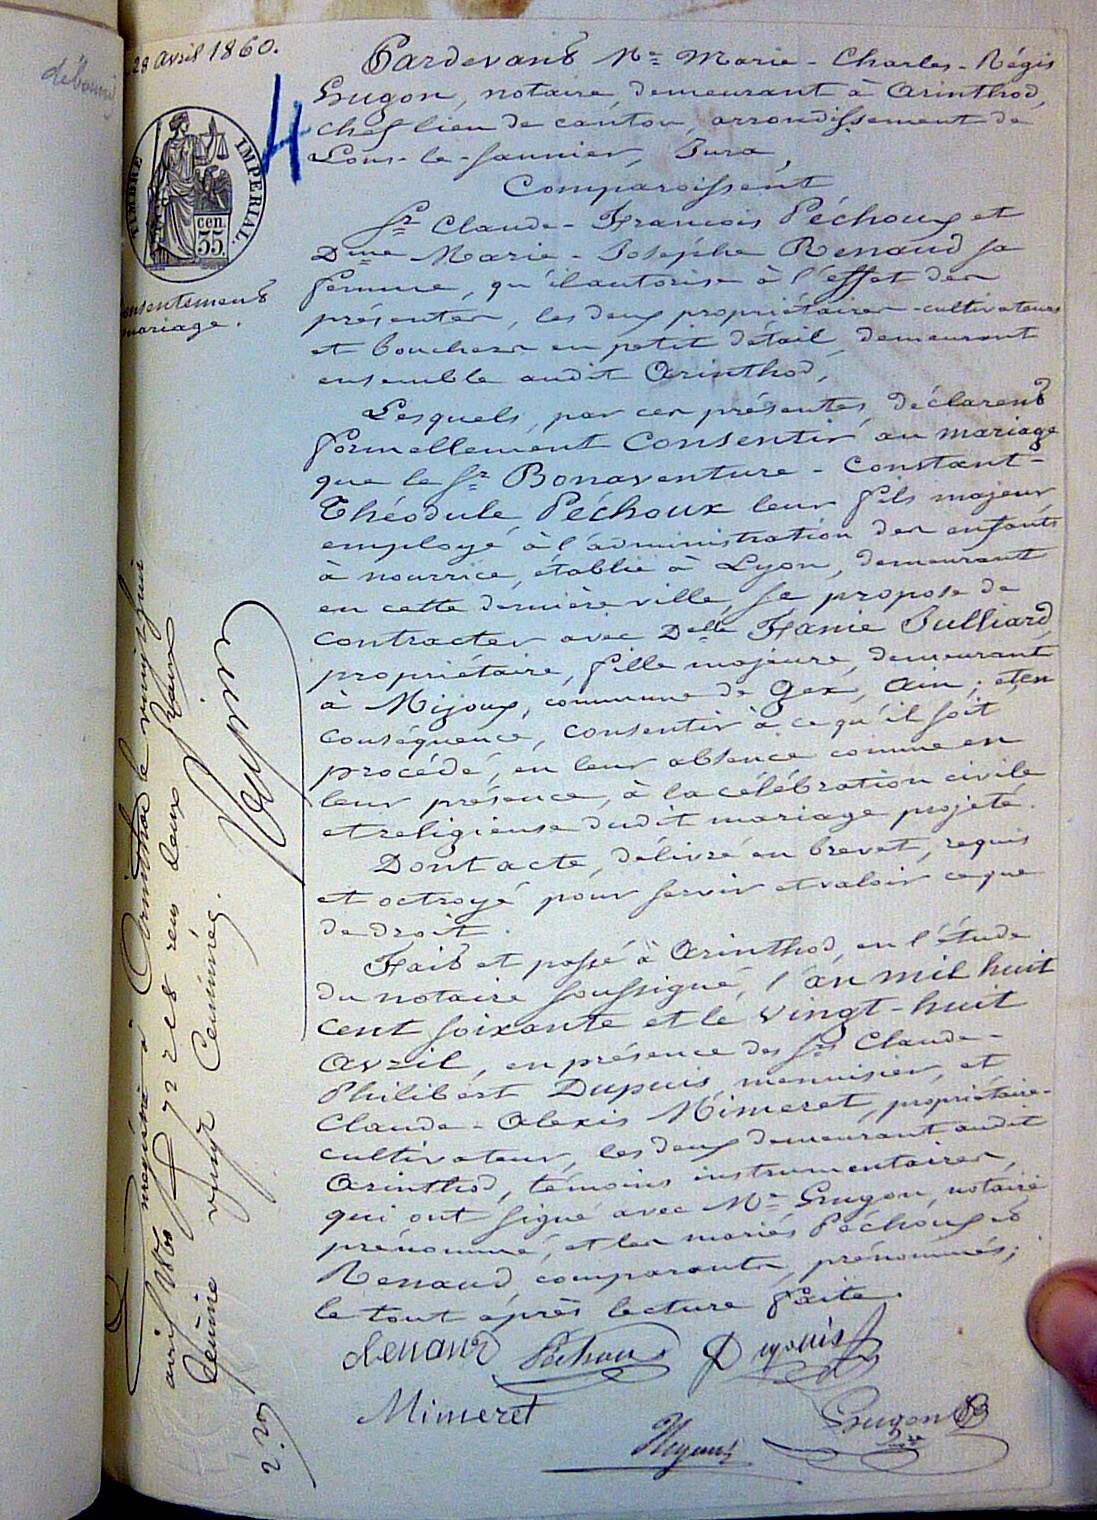 28 avril 1860.
4
TIMBRE IMPERIAL.
cen.
35.
Consentement
mariage.
Pardevant Me Marie - Charles - Régis
Gugon, notaire, demeurant à Arinthod,
chef lieu de canton, arrondissement de
Lons-le-Saunier, Jura,
Comparaissent
Sr Claude - François Péchoux et
Dme Marie - Josephe Renaud sa
femme, qu'il autorise à l'effet des
présentes, les deux propriétaires-cultivateurs
et bouchers en petit détail, demeurant
ensemble audit Arinthod,
Lesquels, par ces présentes, déclarent
formellement consentir au mariage
que le Sr Bonaventure - Constant-
Théodule Péchoux leur fils majeur
employé à l'administration des enfants
à nourrice, établie à Lyon, demeurant
en cette dernière ville, se propose de
contracter avec Delle Fanie Julliard
propriétaire, fille majeure, demeurant
à Mijoux, commune de Gex, Ain; et, en
conséquence, consentir à ce qu'il soit
procédé, en leur absence comme en
leur présence, à la célébration civile
et religieuse dudit mariage projeté.
Dont acte, délivré en brevet, requis
et octroyé pour servir et valoir ce que
de droit.
Fait et passé à Arinthod, en l'étude
du notaire soussigné, l'an mil huit
cent soixante et le vingt-huit
avril, en présence des Srs Claude-
Philibert Dupuis, menuisier, et
Claude - Alexis Mimeret, propriétaire-
cultivateur, les deux demeurant audit
Arinthod, témoins instrumentaires,
qui ont signé avec Me Gugon, notaire
prénommé, et les mariés Péchoux et
Renaud, comparants, prénommés;
le tout après lecture faite.
Renaud Péchoux Dupuis
Mimeret
Gugon
Enregistré à Arinthod le vingt huit
avril 1860 fo 72 re reçu deux francs
décime vingt centimes.
2.20